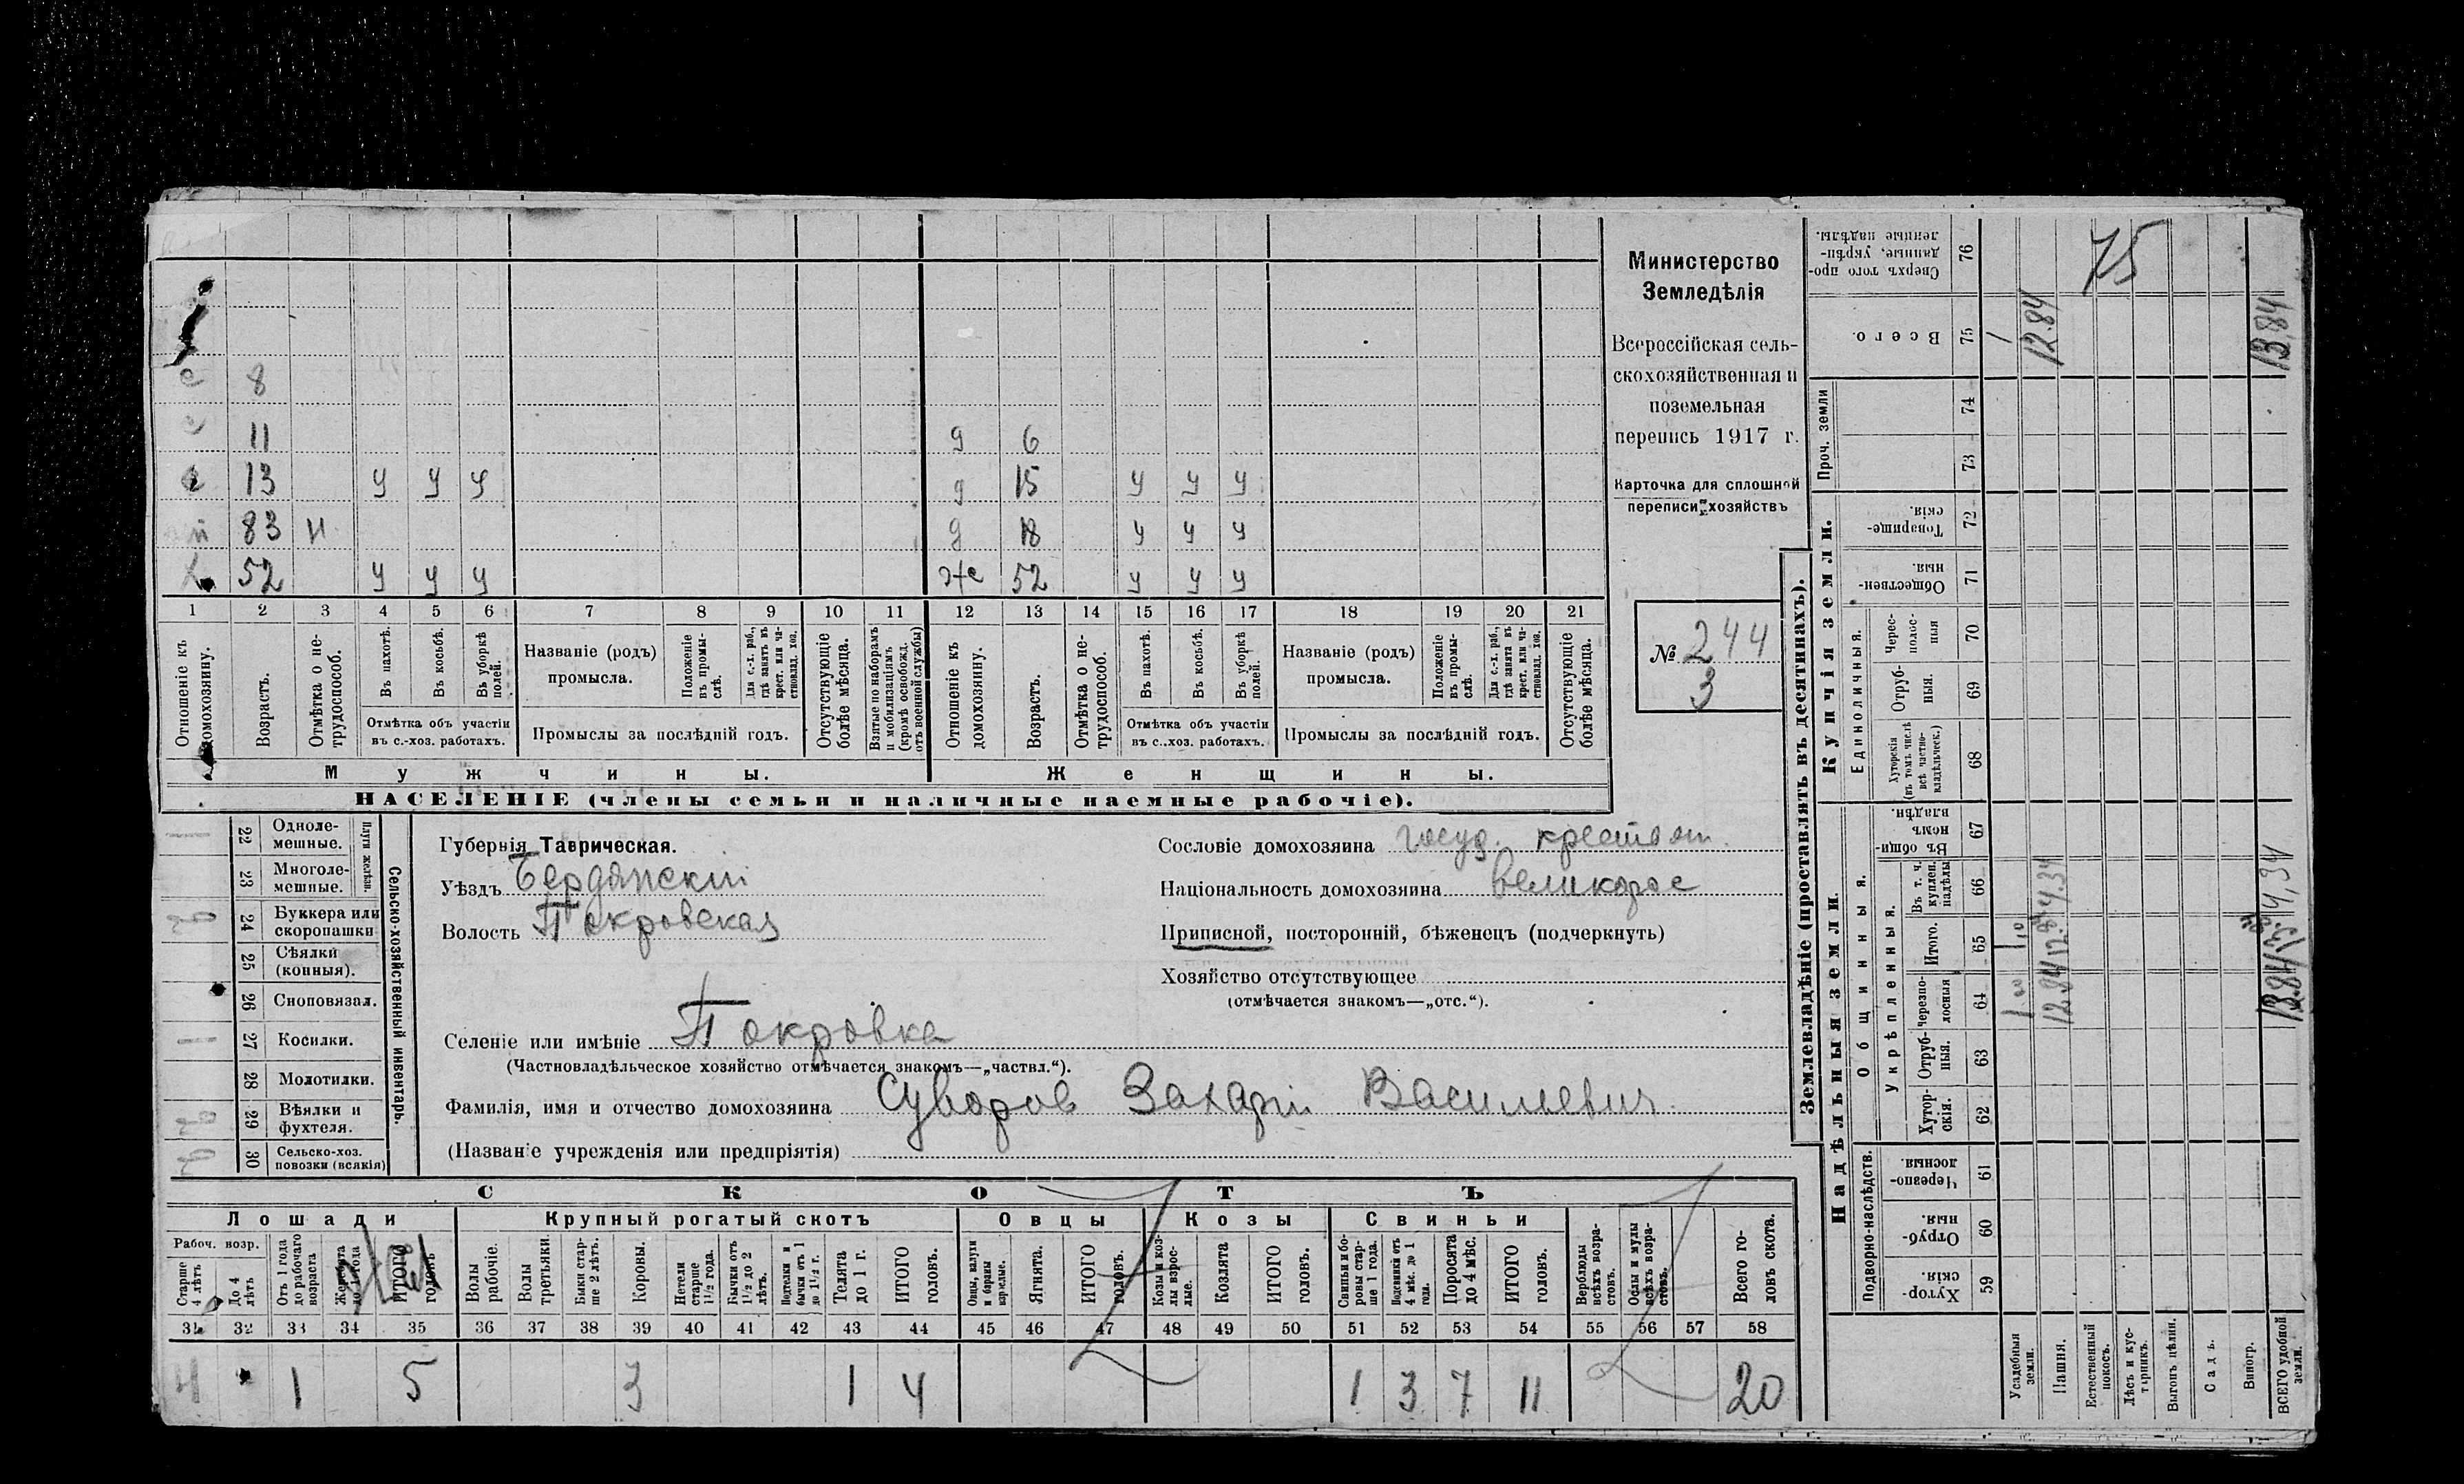 е 8
е 11 д 6
е 13 у у у д 15 у у у
83 н д 18 у у у
52 у у у же 52 у у у
1 2 3 4 5 6 7 8 9 10 11 12 13 14 15 16 17 18 19 20 21
Отношеніе къ домохозяину.
Возрастъ.
Отмѣтка о нетрудоспособ.
Въ пахотѣ.
Въ косьбѣ.
Въ уборкѣ полей.
Отмѣтка объ участіи въ с.-хоз. работахъ.
Названіе (родъ) промысла.
Положеніе въ промыслѣ.
Для с.-х. раб., гдѣ занятъ въ крест. или частновлад. хоз.
Промыслы за послѣдній годъ.
Отсутствующіе болѣе мѣсяца.
Взятые по наборамъ и мобилизаціямъ (кромѣ освобожд. отъ военной службы)
Отношеніе къ домохозяину.
Возрастъ.
Отмѣтка о нетрудоспособ.
Въ пахотѣ.
Въ косьбѣ.
Въ уборкѣ полей.
Отмѣтка объ участіи въ с.-хоз. работахъ.
Названіе (родъ) промысла.
Положеніе въ промыслѣ.
Для с.-х. раб., гдѣ занята въ крест. или частновлад. хоз.
Промыслы за послѣдній годъ.
Отсутствующіе болѣе мѣсяца.
Мужчины. Женщины.
НАСЕЛЕНІЕ (члены семьи и наличные наемные рабочіе).
Министерство
Земледѣлія
Всероссійская сель-
скохозяйственная и
поземельная
перепись 1917 г.
Карточка для сплошной
переписи хозяйствъ
№ 244
3
Сельско-хозяйственный инвентарь.
Плуги желѣзн.
1 22 Одноле-мешные.
23 Многоле-мешные.
24 Буккера или скоропашки
25 Сѣялки (конныя).
26 Сноповязал.
1 27 Косилки.
28 Молотилки.
29 Вѣялки и фухтеля.
30 Сельско-хоз. повозки (всякія)
Губернія Таврическая.
Уѣздъ Бердянскій
Волость Покровская
Селеніе или имѣніе Покровка
(Частновладѣльческое хозяйство отмѣчается знакомъ—„частвл.“).
Фамилія, имя и отчество домохозяина Суворов Захарій Васильевич
(Названіе учрежденія или предпріятія)
Сословіе домохозяина госуд. крестьян.
Національность домохозяина великорос
Приписной, посторонній, бѣженецъ (подчеркнуть)
Хозяйство отсутствующее
(отмѣчается знакомъ—„отс.“).
СКОТЪ
Лошади Крупный рогатый скотъ Овцы Козы Свиньи
Рабоч. возр.
Старше 4 лѣтъ
До 4 лѣтъ
Отъ 1 года до рабочаго возраста
Жеребята до 1 года
ИТОГО головъ
Волы рабочіе.
Волы третьяки.
Быки старше 2 лѣтъ.
Коровы.
Нетели старше 1½ года.
Бычки отъ 1½ до 2 лѣтъ.
Подтелки и бычки отъ 1 до 1½ г.
Телята до 1 г.
ИТОГО головъ.
Овцы, валухи и бараны взрослые.
Ягнята.
ИТОГО головъ.
Козы и козлы взрослые.
Козлята
ИТОГО головъ.
Свиньи и боровы старше 1 года.
Подсвинки отъ 4 мѣс. до 1 года.
Поросята до 4 мѣс.
ИТОГО головъ.
Верблюды всѣхъ возрастовъ.
Ослы и мулы всѣхъ возрастовъ.
Всего головъ скота.
31 32 33 34 35 36 37 38 39 40 41 42 43 44 45 46 47 48 49 50 51 52 53 54 55 56 57 58
4 1 5 3 1 4 1 3 7 11 20
Землевладѣніе (проставлять въ десятинахъ).
Надѣльныя земли. Купчія земли.
Подворно-наслѣдств.
Общинныя.
Укрѣпленныя.
Единоличныя.
Проч. земли
Хуторскія. 59
Отрубныя. 60
Черезполосныя. 61
Хуторскія. 62
Отрубныя. 63
Черезполосныя 64
Итого. 65
Въ т. ч. куплен. надѣлы 66
Въ общиномъ владѣн. 67
Хуторскія (въ томъ числѣ всѣ частновладѣльческ.) 68
Отрубныя. 69
Чересполосныя 70
Общественныя. 71
Товарищескія. 72
73
74
Всего. 75
Сверхъ того проданные, укрѣпленные надѣлы. 76
75
Усадебныя земли. 1
Пашня. 12.84 4.34 12.84
Естественный покосъ.
Лѣсъ и кустарникъ.
Выгонъ цѣлин.
Садъ.
Виногр.
ВСЕГО удобной земли. 13.84 4,34 13,84